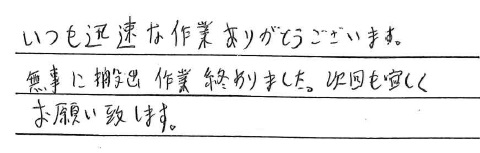 いつも迅速な作業ありがとうございます。
無事に搬出作業終わりました。次回も宜しく
お願い致します。